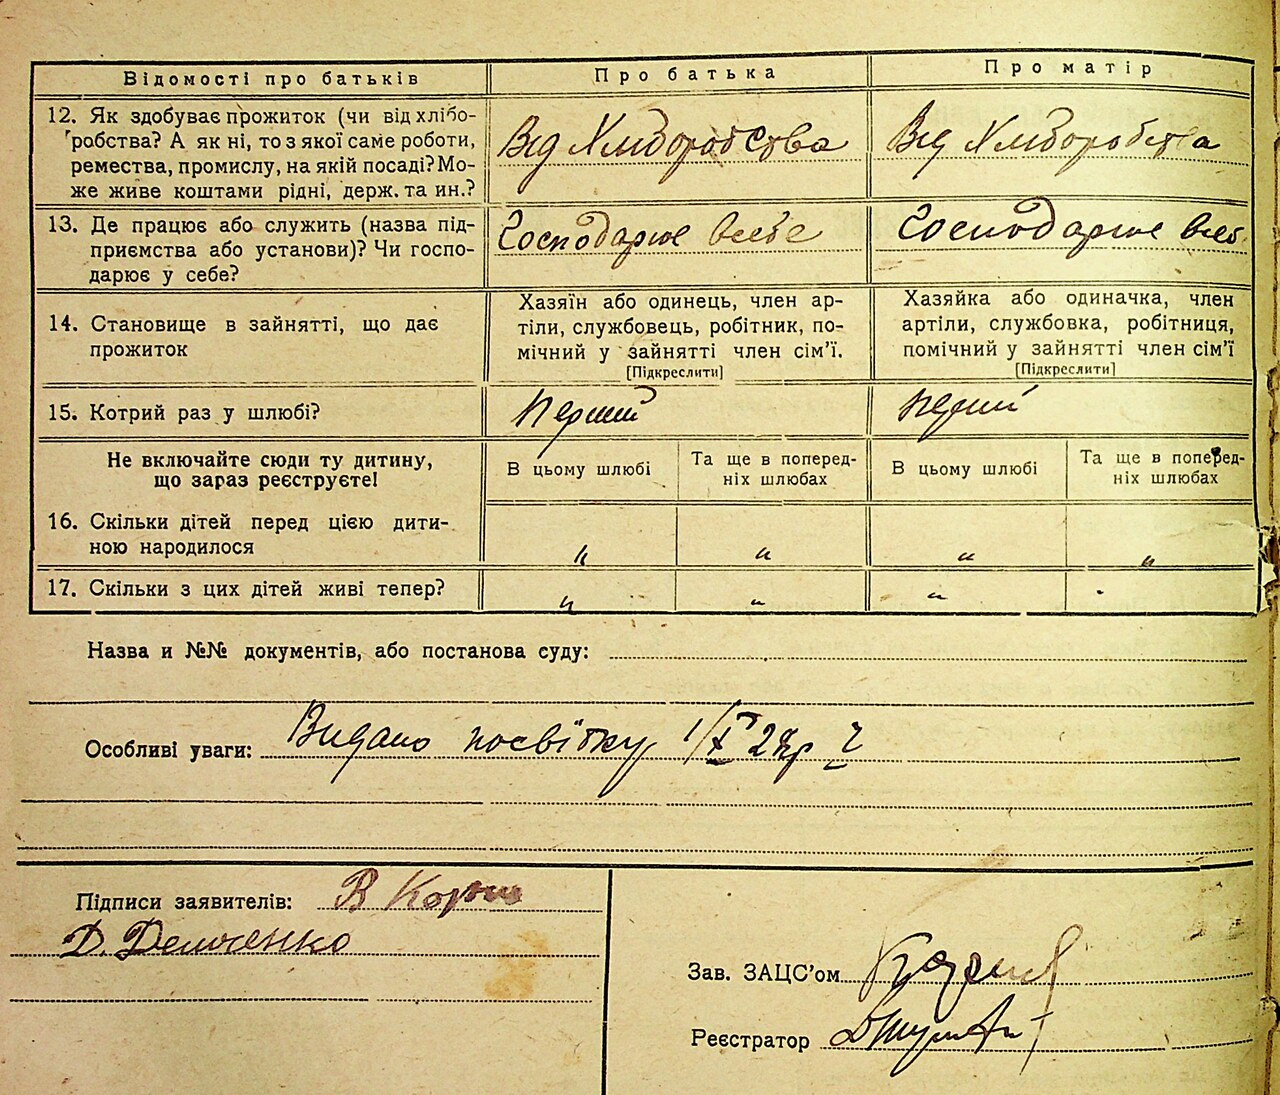 Відомості про батьків
Про батька
Про матір
12. Як здобуває прожиток (чи від хлібо-
робства? А як ні, то з якої саме роботи,
ремества, промислу, на якій посаді? Мо-
же живе коштами рідні, держ. та ин.?
Від Хліборобства
Від Хліборобства
13. Де працює або служить (назва під-
приємства або установи)? Чи госпо-
дарює у себе?
Господарює всебе
Господарює всеб
14. Становище в зайнятті, що дає
прожиток
Хазяїн або одинець, член ар-
тіли, службовець, робітник, по-
мічний у зайнятті член сім'ї.
[Підкреслити]
Хазяйка або одиначка, член
артіли, службовка, робітниця,
помічний у зайнятті член сім'ї
[Підкреслити]
15. Котрий раз у шлюбі?
перший
перший
Не включайте сюди ту дитину,
що зараз реєструєте!
В цьому шлюбі
Та ще в поперед-
ніх шлюбах
В цьому шлюбі
Та ще в поперед-
ніх шлюбах
16. Скільки дітей перед цією дити-
ною народилося
" " " "
17. Скільки з цих дітей живі тепер?
" " "
Назва и №№ документів, або постанова суду:
Особливі уваги: Видано посвітку 1/X
Підписи заявителів: В Корж
Д. Демченко
Зав. ЗАЦС'ом
Реєстратор